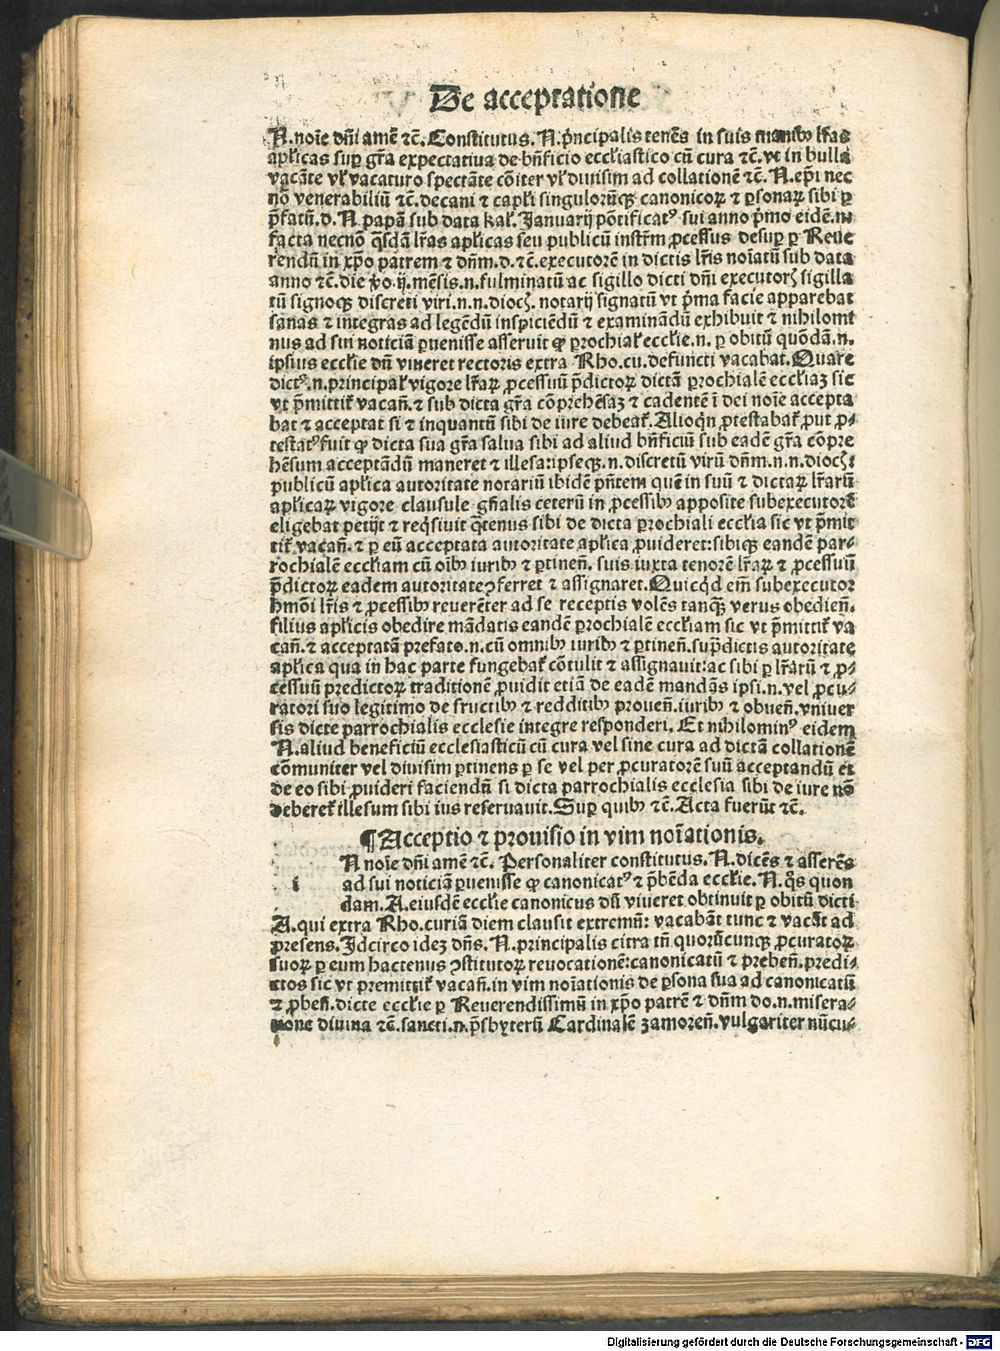 De acceptatione
N. noīe dn̄i amē ⁊c̄. Constitutus. N. p̄ncipalis tenēs in suis manibꝰ lr̄as
apl̄icas suꝑ gr̄a expectatiua de bn̄ficio eccl̄iastico cū cura ⁊c̄. vt in bulla
vacāte vl̓ vacaturo spectāte cōiter vl̓ diuisim ad collationē ⁊c̄. N. ep̄i nec
nō venerabiliū ⁊c̄. decani ⁊ capl̄i singulorūqꝫ canonicoꝝ ⁊ ꝑsonaꝝ sibi ꝑ
p̄fatū. d. N papā sub data kal̓. Januarij pōtificatꝰ sui anno p̄mo eidē. n.
facta necnō q̄sdā lr̄as apl̄icas seu publicū instr̄m ꝓcessus desuꝑ ꝑ Reue
rendū in xp̄o patrem ⁊ dn̄m. d. ⁊c̄. executorē in dictis lr̄is noīatū sub data
anno ⁊c̄. die vo. ij. mēsis. n. fulminatū ac sigillo dicti dn̄i executorꝭ sigilla
tū signoqꝫ discreti viri. n. n. diocꝭ. notarij signatū vt p̄ma facie apparebat
sanas ⁊ integras ad legēdū inspiciēdū ⁊ examinādū exhibuit ⁊ nihilomi
nus ad sui noticiā ꝑuenisse asseruit ꝙ ꝑrochial̓ eccl̄ie. n. ꝑ obitū quōdā. n.
ipsius eccl̄ie dū viueret rectoris extra Rho. cu. defuncti vacabat. Quare
dictꝰ. n. principal̓ vigore lr̄aꝝ ꝓcessuū p̄dictoꝝ dictā ꝑrochialē eccl̄iaꝫ sic
vt p̄mittit̓ vacan̄. ⁊ sub dicta gr̄a cōprehēsaꝫ ⁊ cadentē ī dei noīe accepta
bat ⁊ acceptat si ⁊ inquantū sibi de iure debeat̓. Alioq̄n ꝓtestabat̓ ꝓut ꝓ-
testatꝰ fuit ꝙ dicta sua gr̄a salua sibi ad aliud bn̄ficiū sub eadē gr̄a cōpre
hēsum acceptādū maneret ⁊ illesa: ipseqꝫ. n. discretū virū dn̄m. n. n. diocꝭ
publicū apl̄ica autoritate notariū ibidē pn̄tem quē in suū ⁊ dictaꝝ lr̄arū
apl̄icaꝝ vigore clausule gn̄alis ceterū in ꝓcessibꝰ apposite subexecutorē
eligebat petijt ⁊ reqͥsiuit q̄tenus sibi de dicta ꝑrochiali eccl̄ia sic vt p̄mit
tit̓ vacan̄. ⁊ ꝑ eū acceptata autoritate apl̄ica ꝓuideret: sibiqꝫ eandē par-
rochialē eccl̄iam cū oībꝰ iuribꝰ ⁊ ꝑtinen̄. suis iuxta tenorē lr̄aꝝ ⁊ ꝓcessuū
p̄dictoꝝ eadem autoritate ↄferret ⁊ assignaret. Quicqͥd em̄ subexecutor
hmōi lr̄is ⁊ ꝓcessibꝰ reuerēter ad se receptis volēs tanqꝫ verus obedien̄.
filius apl̄icis obedire mādatis eandē ꝑrochialē eccl̄iam sic vt p̄mittit̓ va
can̄. ⁊ acceptatā prefato. n. cū omnibꝰ iuribꝰ ⁊ ꝑtinen̄. sup̄dictis autoritate
apl̄ica qua in hac parte fungebat̓ cōtulit ⁊ assignauit: ac sibi ꝑ lr̄arū ⁊ ꝓ-
cessuū predictoꝝ traditionē ꝓuidit etiā de eadē mandās ipsi. n. vel ꝓcu-
ratori suo legitimo de fructibꝰ ⁊ redditibꝰ prouen̄. iuribꝰ ⁊ obuen̄. vniuer
sis dicte parrochialis ecclesie integre responderi. Et nihilominꝰ eidem
N. aliud beneficiū ecclesiasticū cū cura vel sine cura ad dictā collationē
cōmuniter vel diuisim ꝑtinens ꝑ se vel per ꝓcuratorē suū acceptandū et
de eo sibi ꝓuideri faciendū si dicta parrochialis ecclesia sibi de iure nō
deberet̓ illesum sibi ius reseruauit. Suꝑ quibꝰ ⁊c̄. Acta fuerūt ⁊c̄.
¶ Acceptio ⁊ prouisio in vim noīationis.
N noīe dn̄i amē ⁊c̄. Personaliter constitutus. N. dicēs ⁊ asserēs
i ad sui noticiā ꝑuenisse ꝙ canonicatꝰ ⁊ p̄bēda eccl̄ie. N. q̄s quon
dam. A. eiusdē eccl̄ie canonicus dū viueret obtinuit ꝑ obitū dicti
A. qui extra Rho. curiā diem clausit extremū: vacabāt tunc ⁊ vacāt ad
presens. Jdcirco ideꝫ dn̄s. N. principalis citra tn̄ quorūcunqꝫ ꝓcuratoꝝ
suoꝝ ꝑ eum hactenus ↄstitutoꝝ reuocationē: canonicatū ⁊ preben̄. predi-
ctos sic vt premittit̓ vacan̄. in vim noīationis de ꝑsona sua ad canonicatū
⁊ ꝓben̄. dicte eccl̄ie ꝑ Reuerendissimū in xp̄o patrē ⁊ dn̄m do. n. misera-
tione diuina ⁊c̄. sancti. n. p̄sbyterū Cardinalē zamoren̄. vulgariter nūcu-
Digitalisierung gefördert durch die Deutsche Forschungsgemeinschaft - DFG